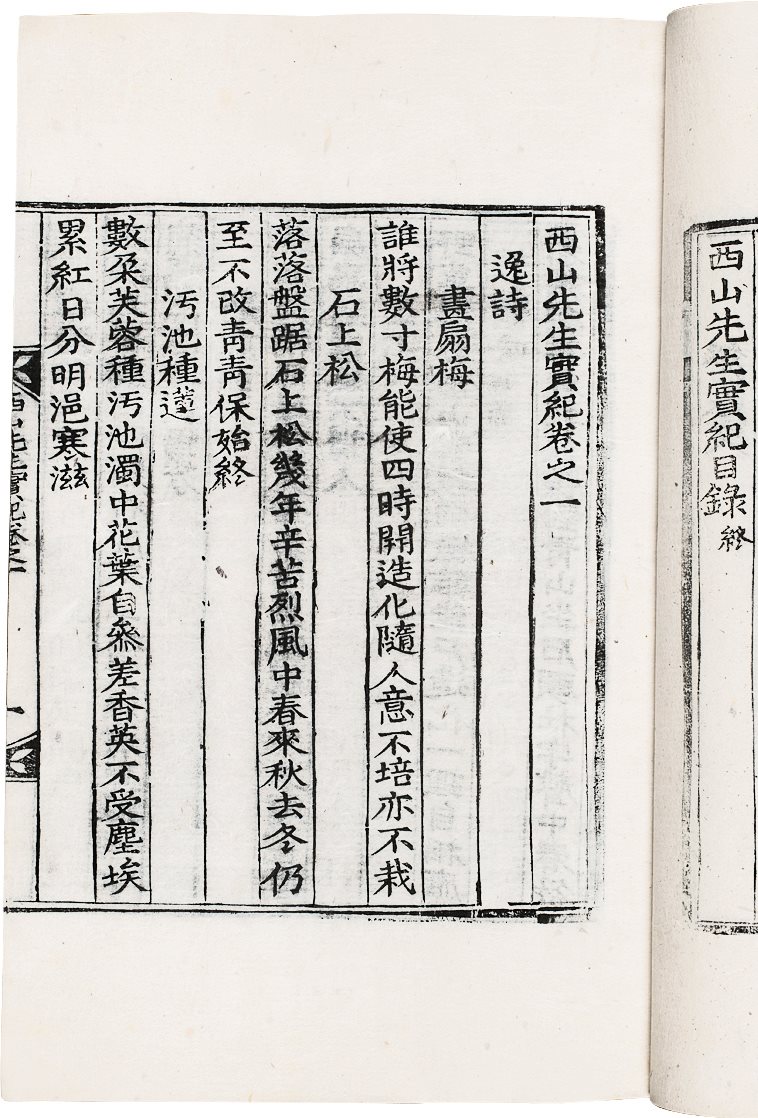 西山先生實紀目錄終
西山先生實紀卷之一
逸詩
畫扇梅
誰將數寸梅能使四時開造化隨人意不培亦不栽
石上松
落落盤踞石上松幾年辛苦烈風中春來秋去冬仍
至不改靑靑保始終
汚池種蓮
數朶芙蓉種汚池濁中花葉自叅差香英不受塵埃
累紅日分明浥寒滋
西山先生實紀卷之一
一